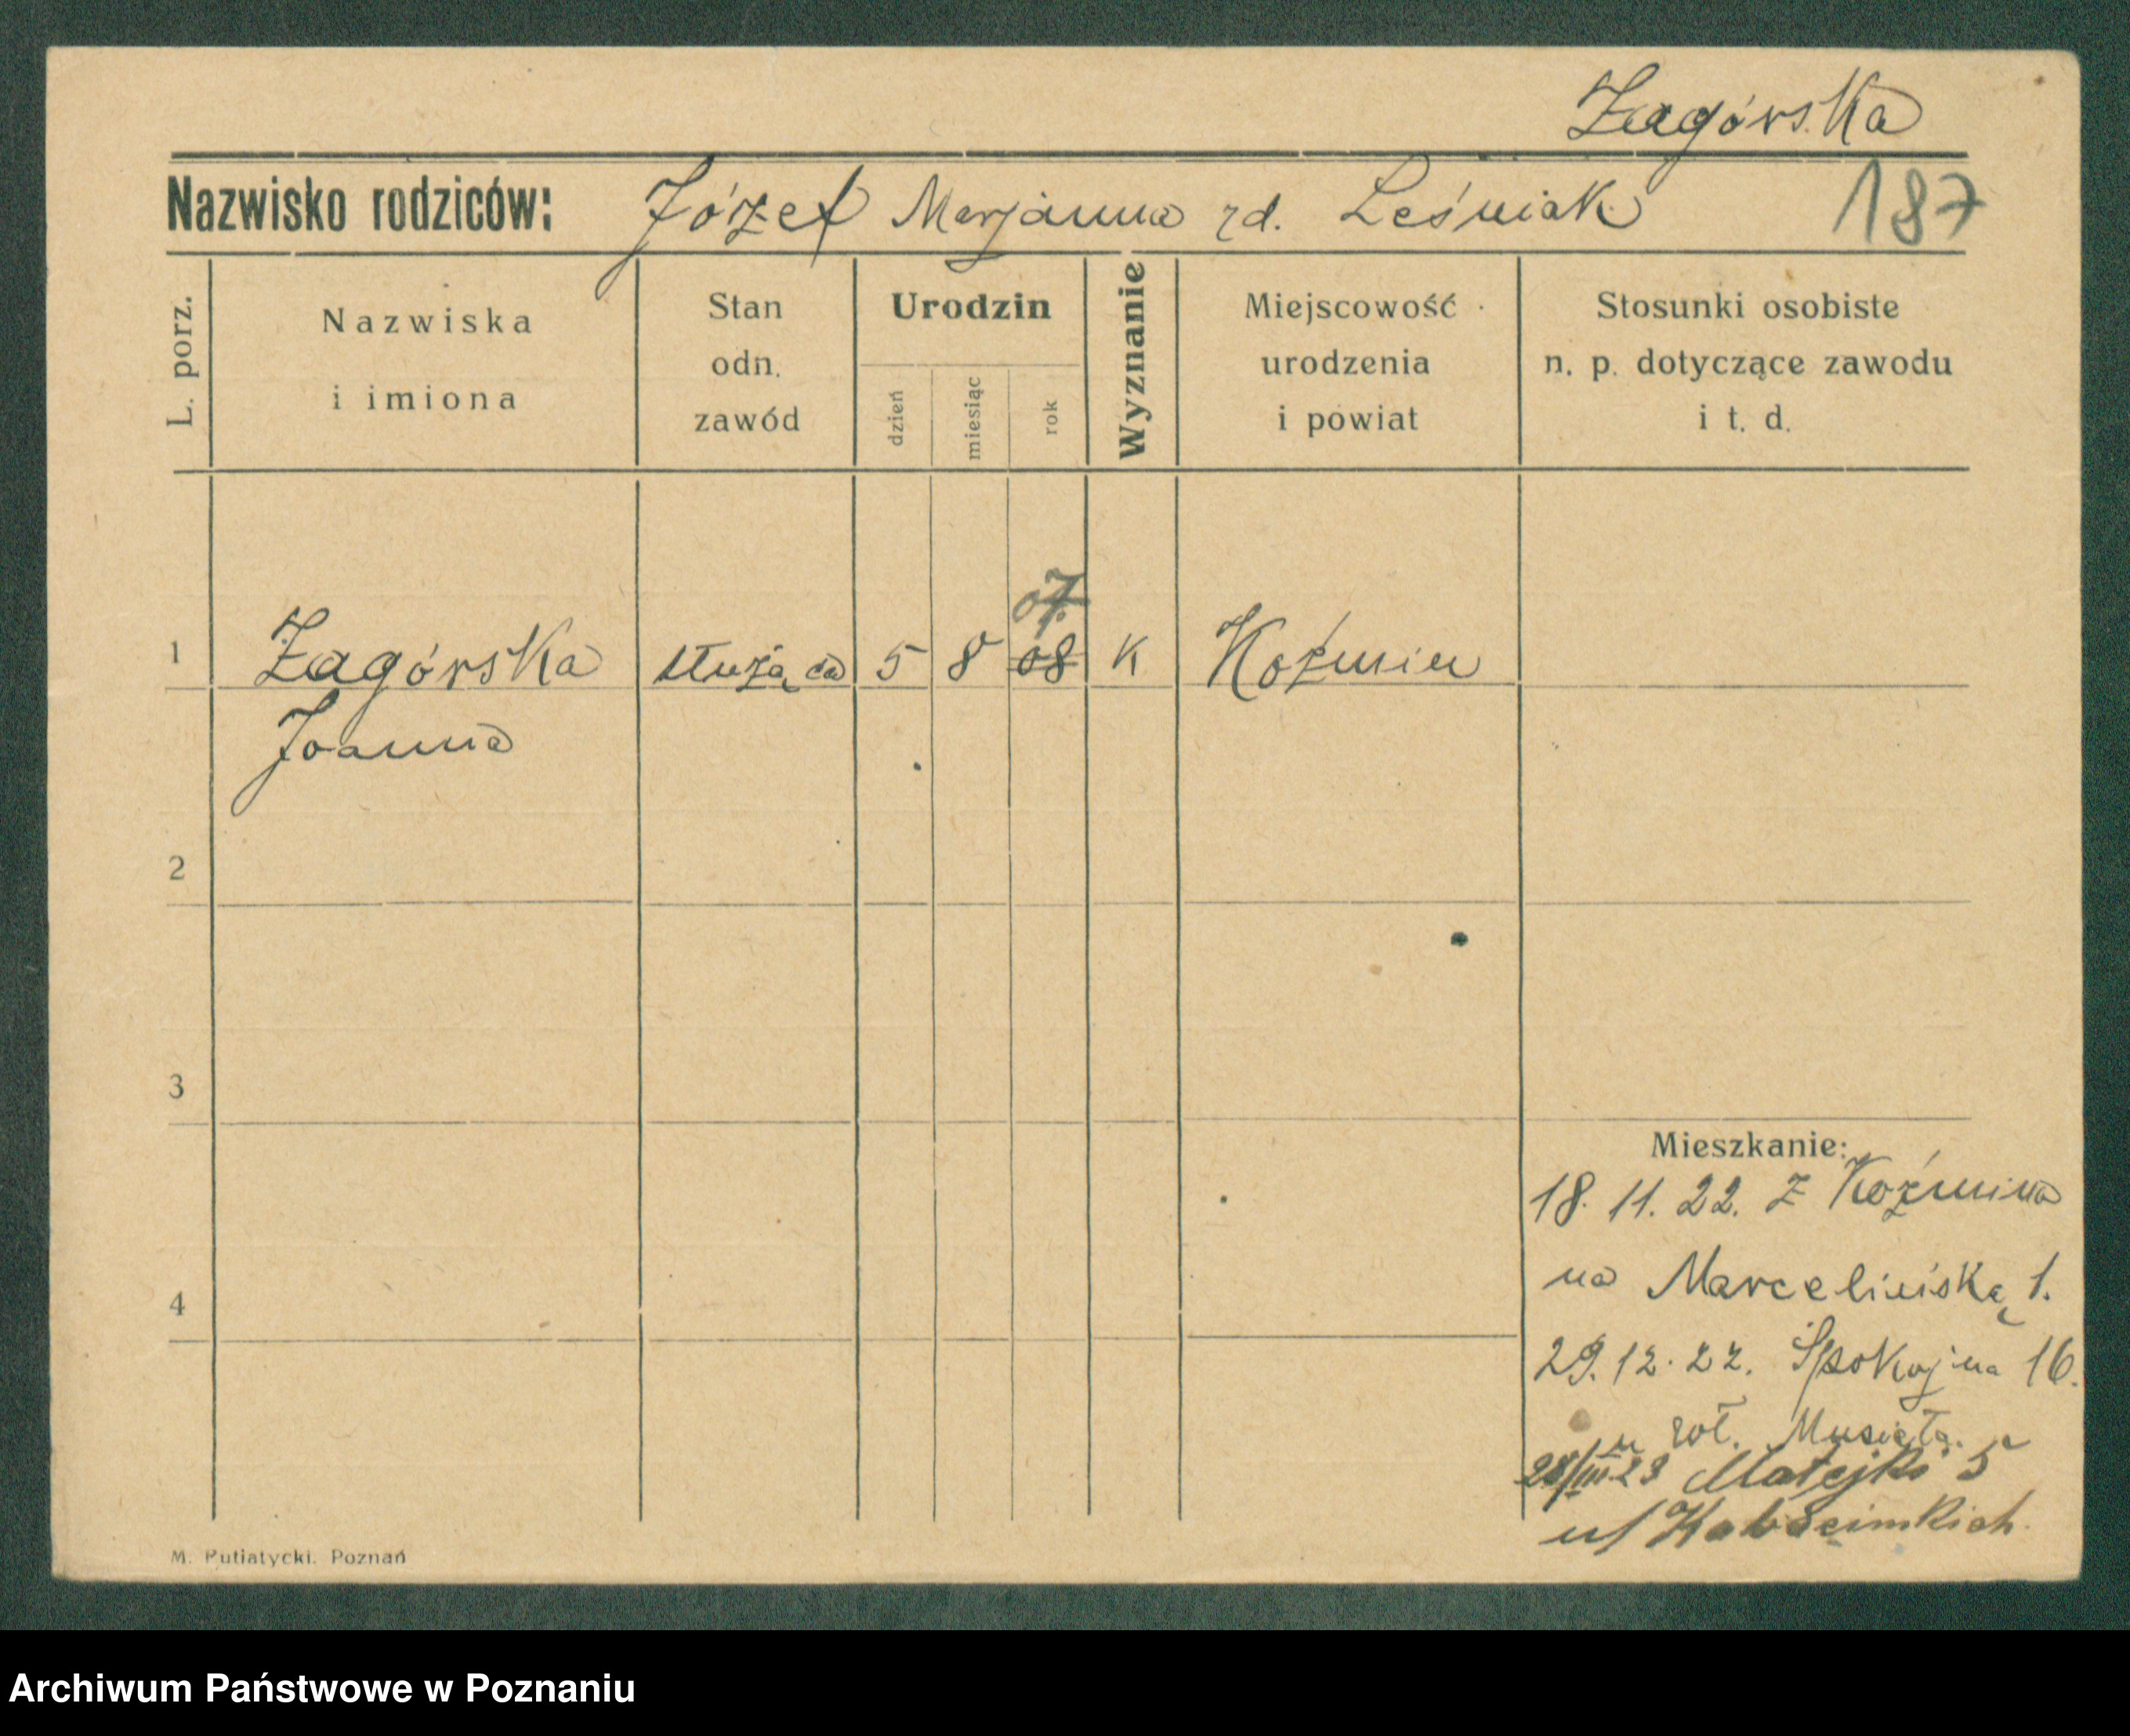 Zagórska
Nazwisko rodziców: Józef Marjanna zd. Leśniak 187
L. porz.
Nazwiska
i imiona
Stan
odn.
zawód
Urodzin
dzień
miesiąc
rok
Wyznanie
Miejscowość
urodzenia
i powiat
Stosunki osobiste
n. p. dotyczące zawodu
i t. d.
07.
1 Zagórska służąca 5 8 08 K Koźmin
Joanna
2
3
4
Mieszkanie:
18. 11. 22. z Koźmina
na Marcelińską 1.
29. 12. 22. Spokojna 16.
u rol. Musiała.
28/III 23 Matejki 5
u/
M. Putiatycki. Poznań
Archiwum Państwowe w Poznaniu